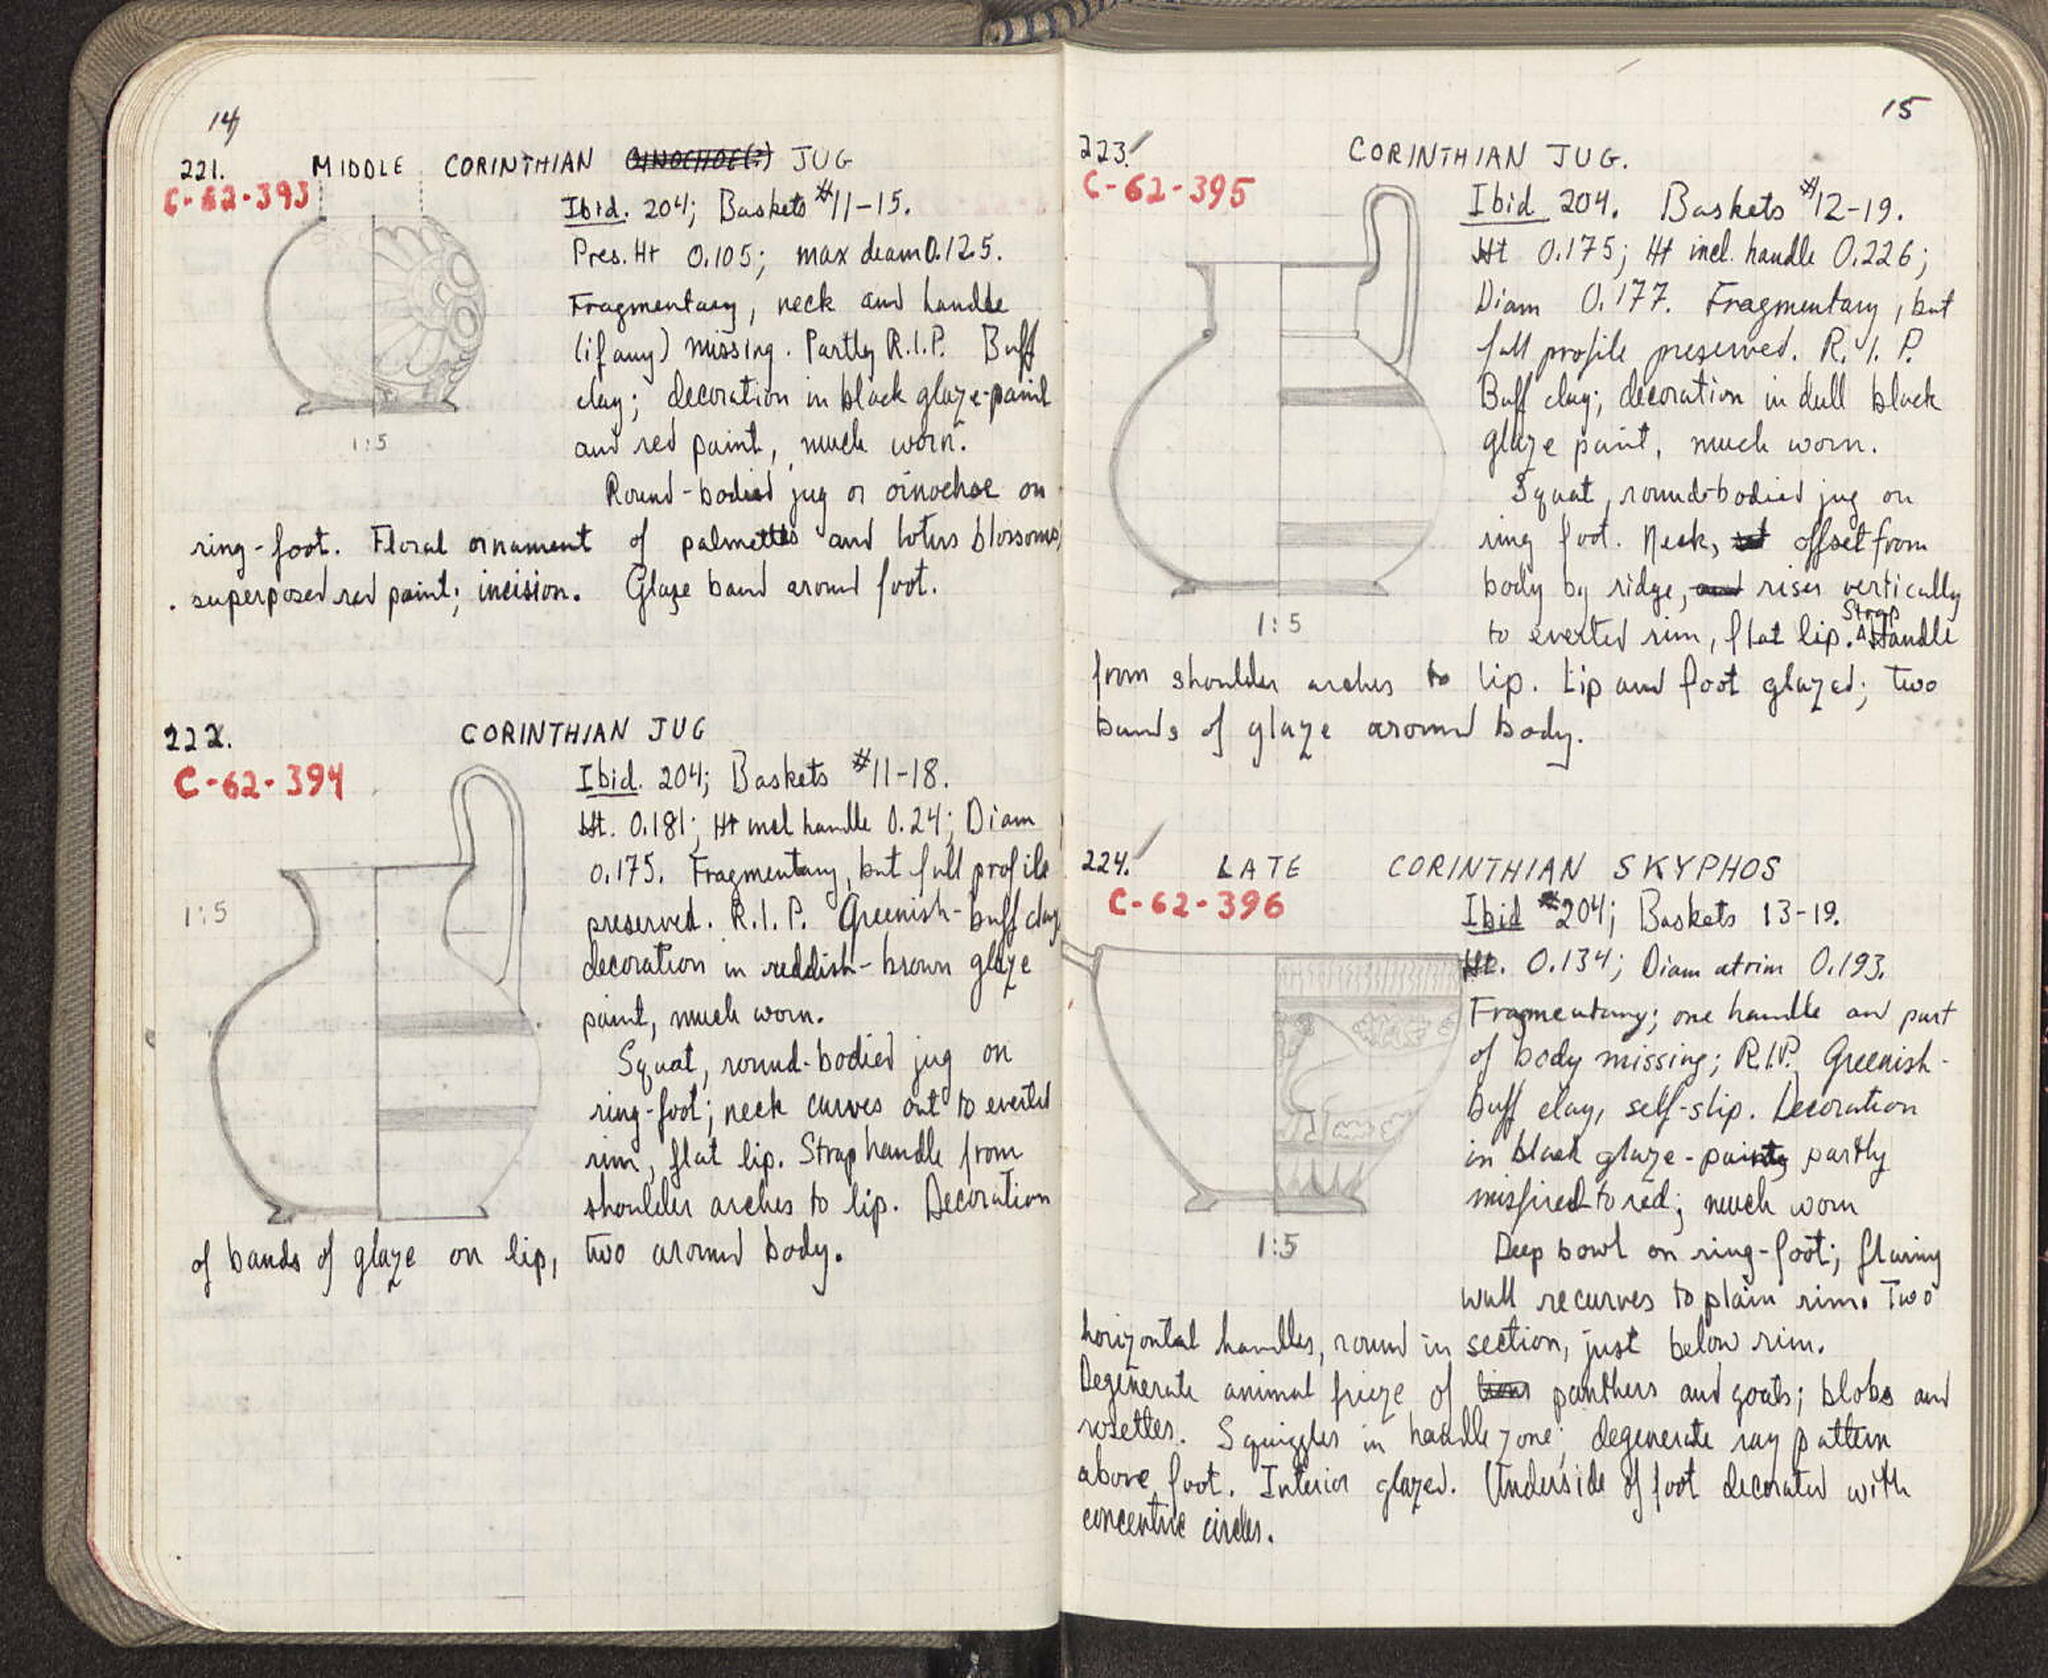 14
221. MIDDLE CORINTHIAN OINOCHOE(?) JUG
C-62-393
Ibid. 204; Baskets #11-15.
Pres. Ht 0.105; max diam 0.125.
Fragmentary, neck and handle
(if any) missing. Partly R.I.P. Buff
clay; decoration in black glaze-paint
and red paint, much worn.
Round-bodied jug or oinochoe on
ring-foot. Floral ornament of palmettes and lotus blossoms,
superposed red paint; incision. Glaze band around foot.
1:5
222. CORINTHIAN JUG
C-62-394
Ibid. 204; Baskets #11-18.
Ht. 0.181; Ht incl handle 0.24; Diam
0.175. Fragmentary, but full profile
preserved. R.I.P. Greenish-buff clay
decoration in reddish-brown glaze
paint, much worn.
Squat, round-bodied jug on
ring-foot; neck curves out to everted
rim, flat lip. Strap handle from
shoulder arches to lip. Decoration
of bands of glaze on lip, two around body.
1:5
15
223. CORINTHIAN JUG.
C-62-395
Ibid 204. Baskets #12-19.
Ht 0.175; Ht incl. handle 0.226;
Diam 0.177. Fragmentary, but
full profile preserved. R.I.P.
Buff clay; decoration in dull black
glaze paint, much worn.
Squat, round-bodied jug on
ring foot. Neck, set offset from
body by ridge, and rises vertically
to everted rim, flat lip. Strap Handle
from shoulder arches to lip. Lip and foot glazed; two
bands of glaze around body.
1:5
224. LATE CORINTHIAN SKYPHOS
C-62-396
Ibid #204; Baskets 13-19.
Ht. 0.134; Diam at rim 0.193.
Fragmentary; one handle and part
of body missing; R.I.P. Greenish-
buff clay, self-slip. Decoration
in black glaze-paint, partly
misfired to red; much worn
Deep bowl on ring-foot; flaring
wall recurves to plain rim. Two
horizontal handles, round in section, just below rim.
Degenerate animal frieze of lions panthers and goats; blobs and
rosettes. Squiggles in handle zone; degenerate ray pattern
above foot. Interior glazed. Underside of foot decorated with
concentric circles.
1:5